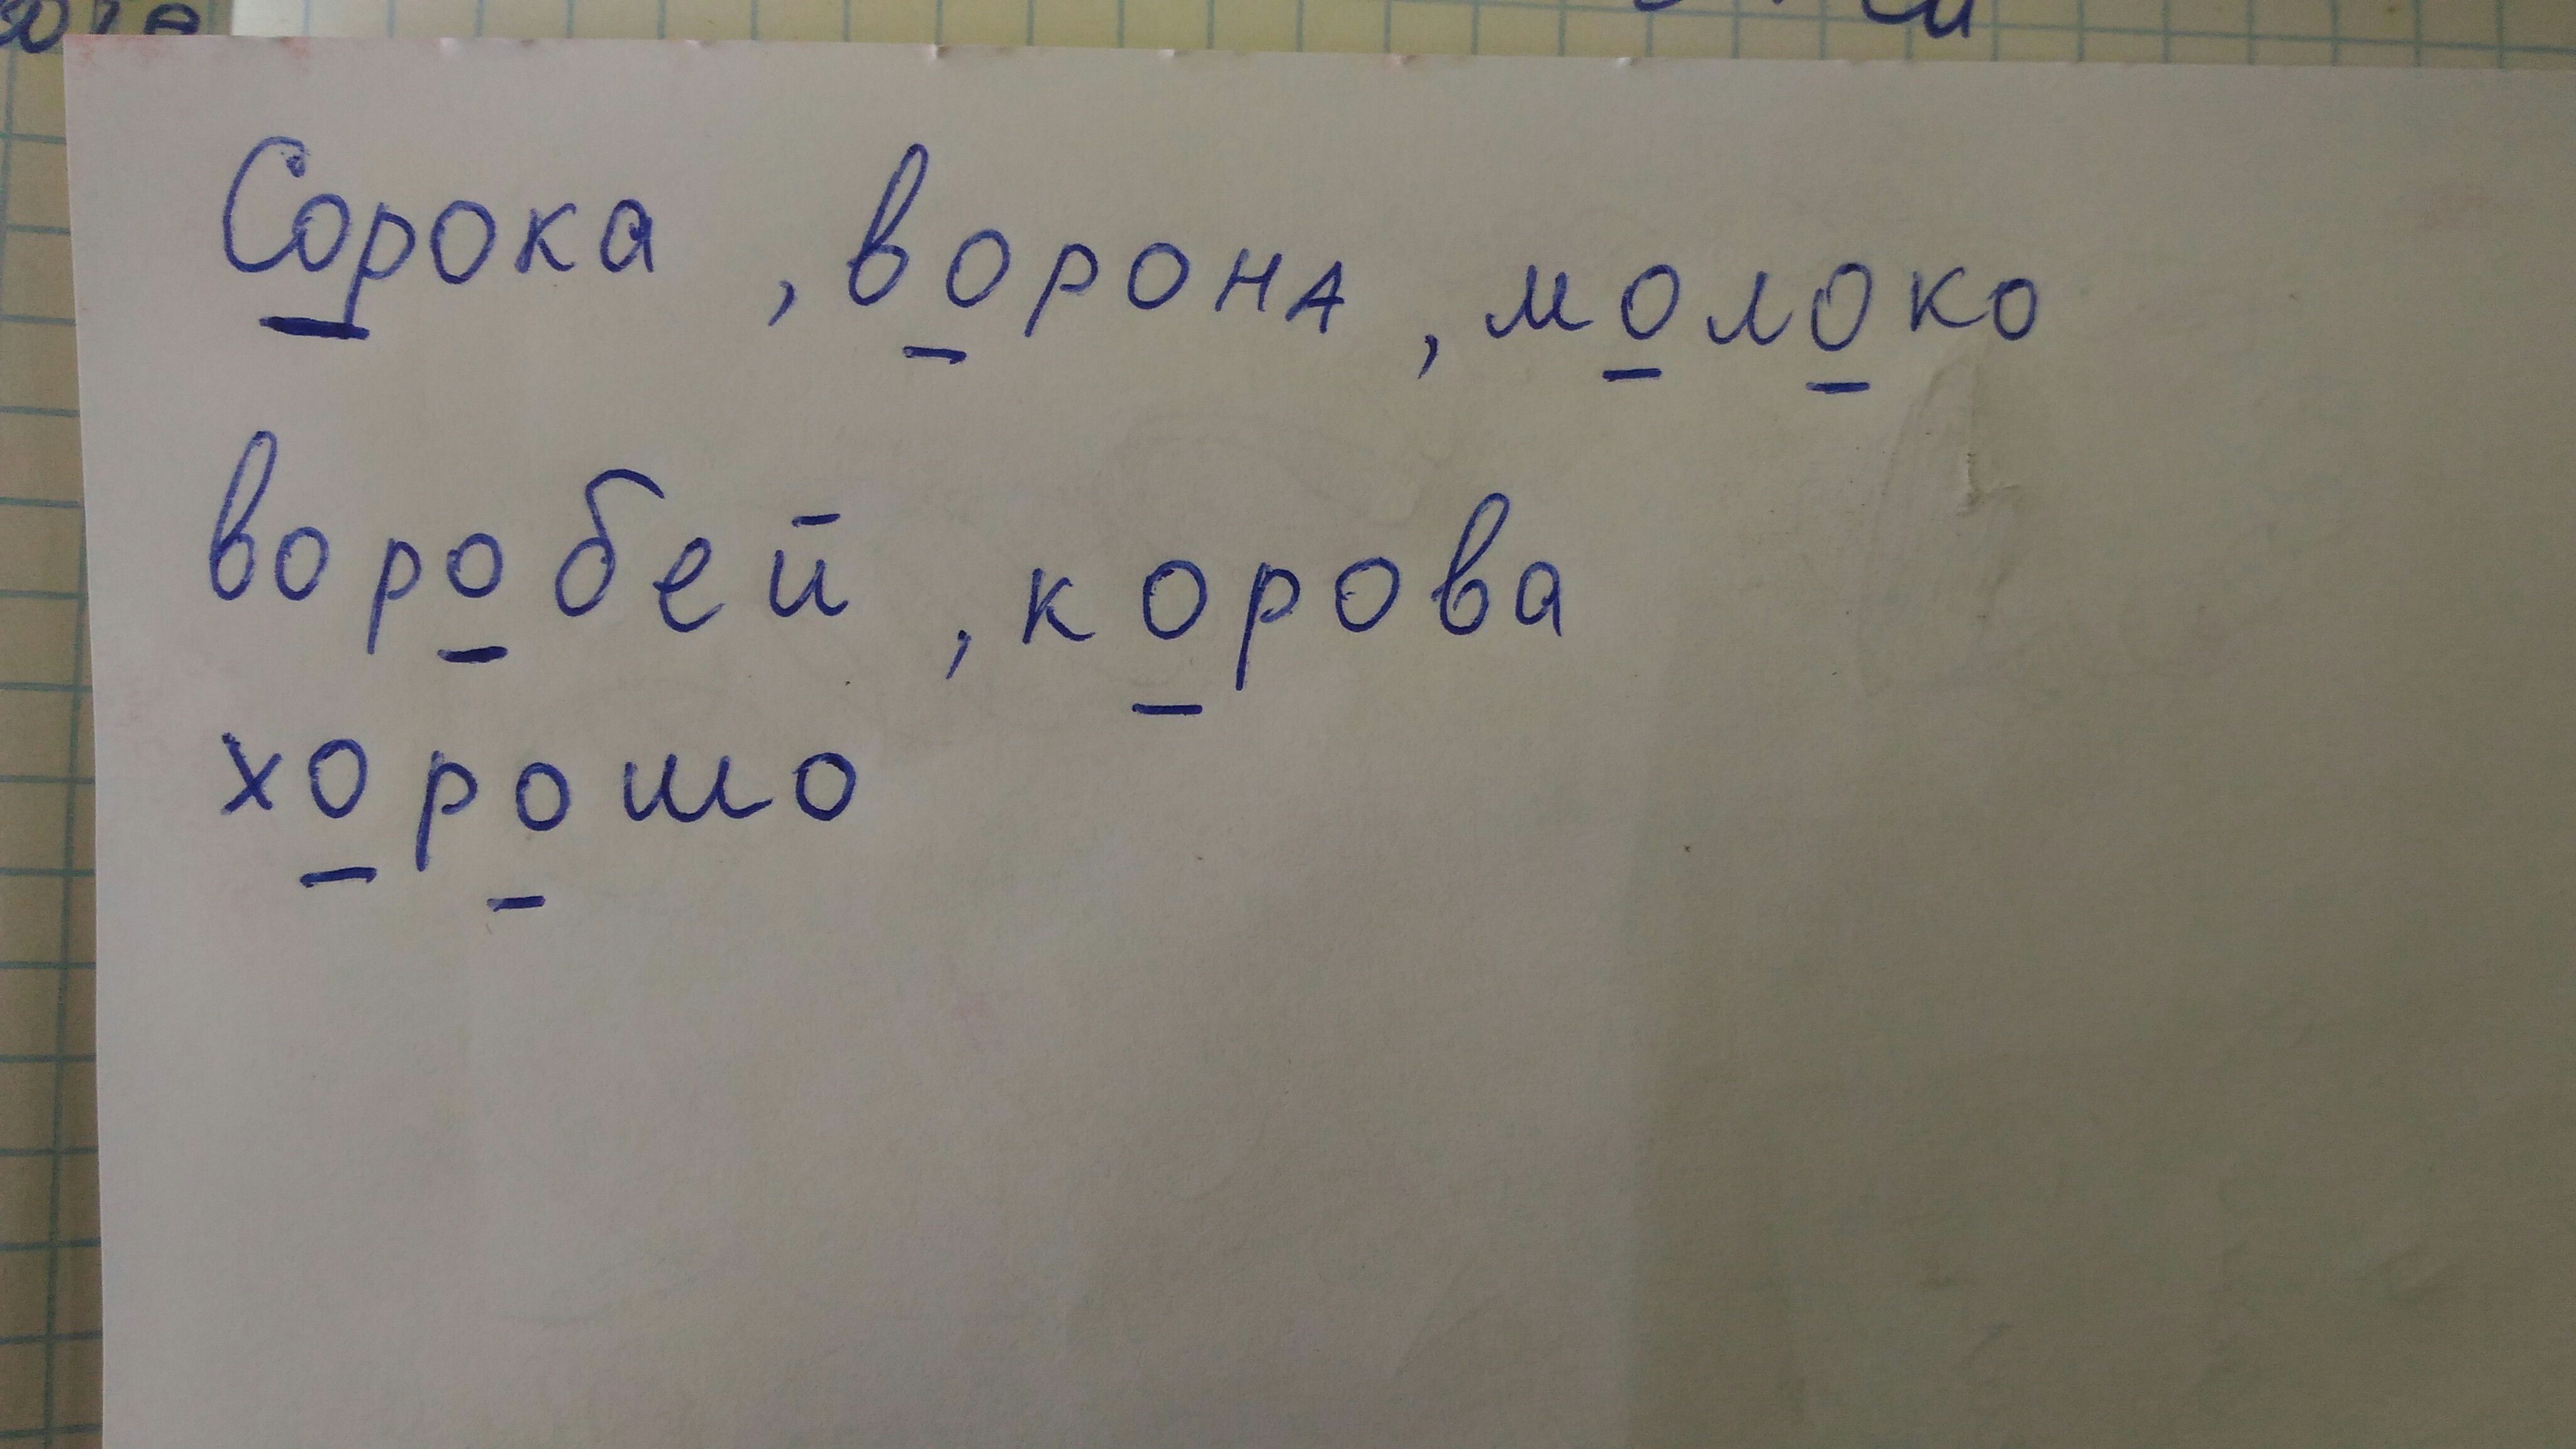 Сорока, ворона, молоко
воробей, корова
хорошо